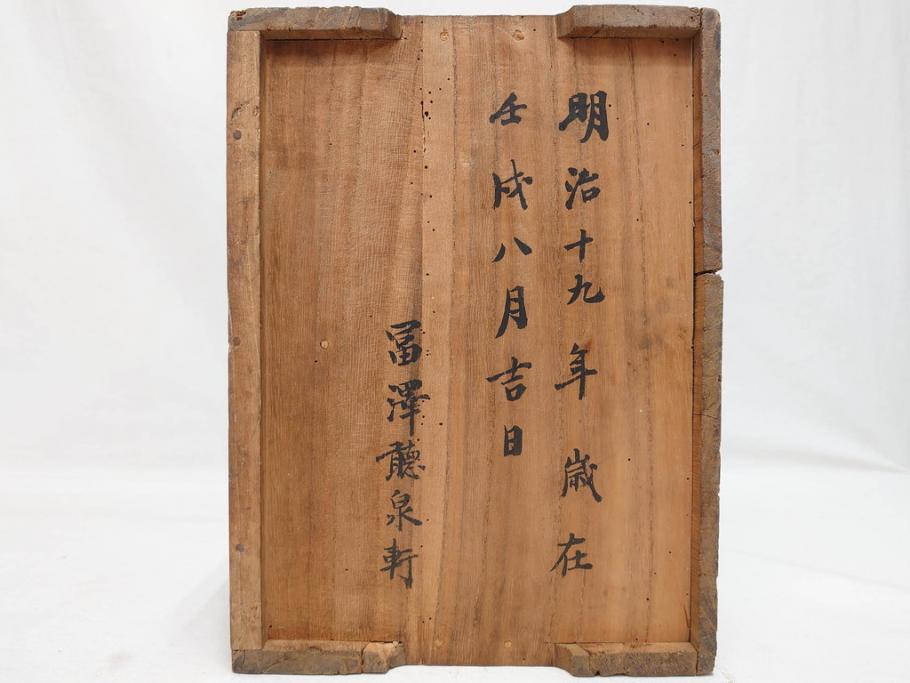 明治十九年歳在
壬戌八月吉日
冨澤聽泉軒